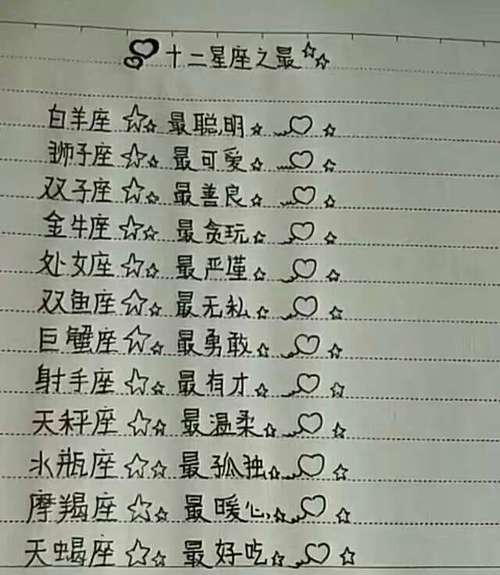 十二星座之最
白羊座 最聪明
狮子座 最可爱
双子座 最善良
金牛座 最贪玩
处女座 最严谨
双鱼座 最无私
巨蟹座 最勇敢
射手座 最有才
天秤座 最温柔
水瓶座 最孤独
摩羯座 最暖心
天蝎座 最好吃